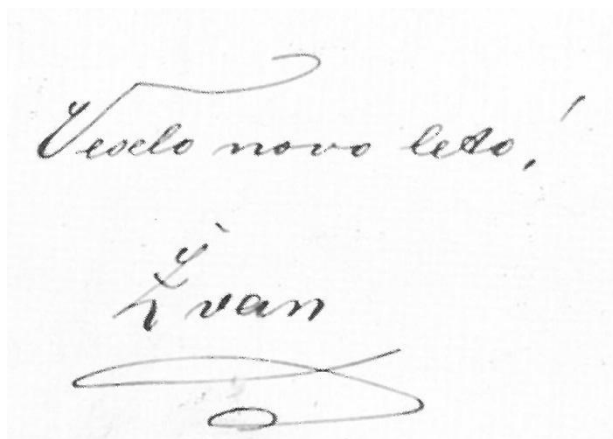 Veselo novo leto!
Žvan